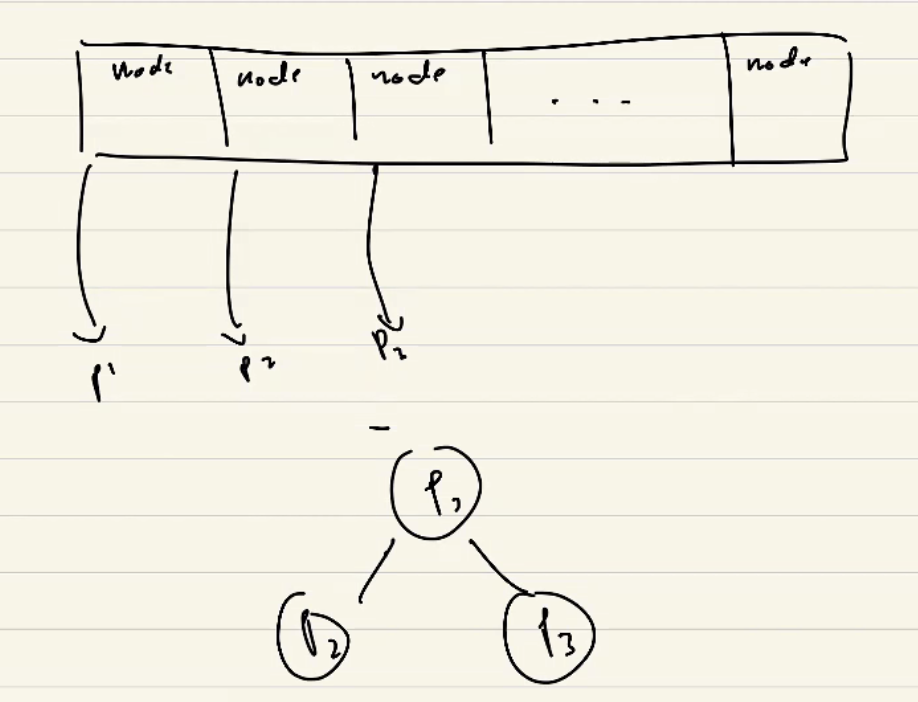 node node node . . . node
p1 p2 P2
P1
P2 P3